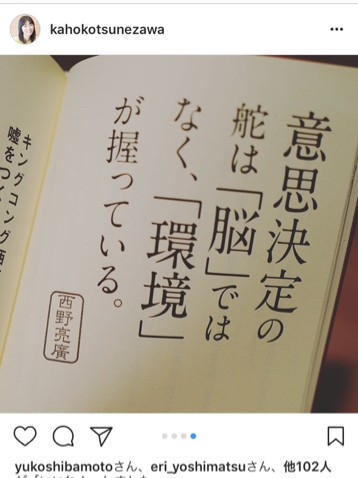 kahokotsunezawa
意思決定の
舵は「脳」では
なく、「環境」
が握っている。
西野亮廣
キングコング西
嘘をつく
yukoshibamotoさん、eri_yoshimatsuさん、他102人